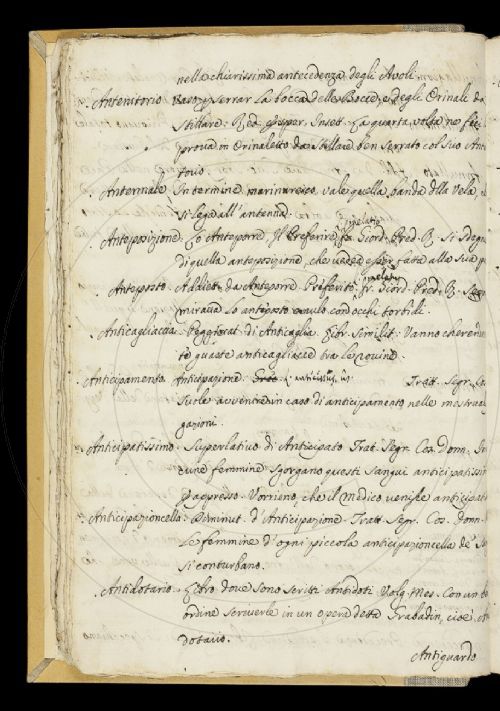 nella chiarissima antecedenza degli Avoli.
Antenitorio. Vaso p serrar la bocca delle Bocce, e degli Orinali da
stillare. Red. esper. Inset. La quarta volta ne feci
prova in Orinaletto da stillare ben serrato col suo Ant
torio.
Antennale. In termine marinaresco, vale quella banda della Vela, 
si lega all'antenna.
Anteposizione. Lo Anteporre, Il Preferire. Giord. Pred. R. Si sdegn
di quella anteposizione, che vedea esser fatta allo sua
Anteposto. Addiett. da Anteporre. Preferito. fr. Giord. Pred. R. 
mirava lo anteposto emulo con occhi torbidi.
Anticagliaccia. Peggiorat. di Anticaglia. Libr. Similit. Vanno cheren
te guaste anticagliacce tra le rovine.
Anticipamento. Anticipazione. Tratt. Segr. Co
Suole avvenire in caso di anticipamento nelle mestrua
gazioni.
Anticipatissimo. Superlativo di Anticipato. Trat. Segr. Cos. Donn. In
cune femmine sgorgano questi sangui anticipatissim
E appresso. Vorrieno, che il medico venisse anticipat
Anticipazioncella. Diminut. d'Anticipazione. Tratt. Segr. Cos. donn.
Le femmine d'ogni piccola anticipazioncella
si conturbano.
Antidotario. Libro dove sono scritti Antidoti. Volg. Mes. Con un be
ordine scriverle in un opera detta Grabadin, cioè, An
dotario.
Antiguardo